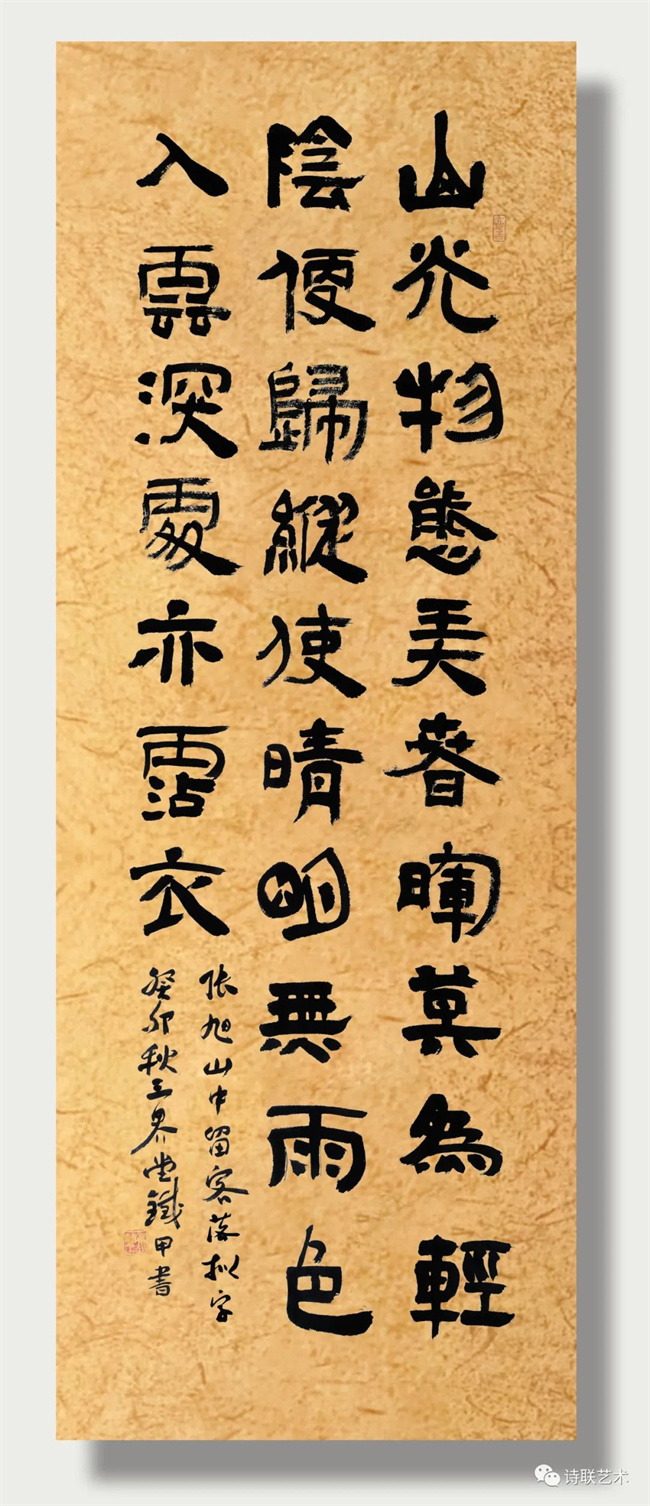 山光物態弄春暉莫為輕
陰便歸縱使晴明無雨色
入雲深處亦霑衣
张旭山中留客落拟字
癸卯秋三界堂鐵甲書
诗联艺术